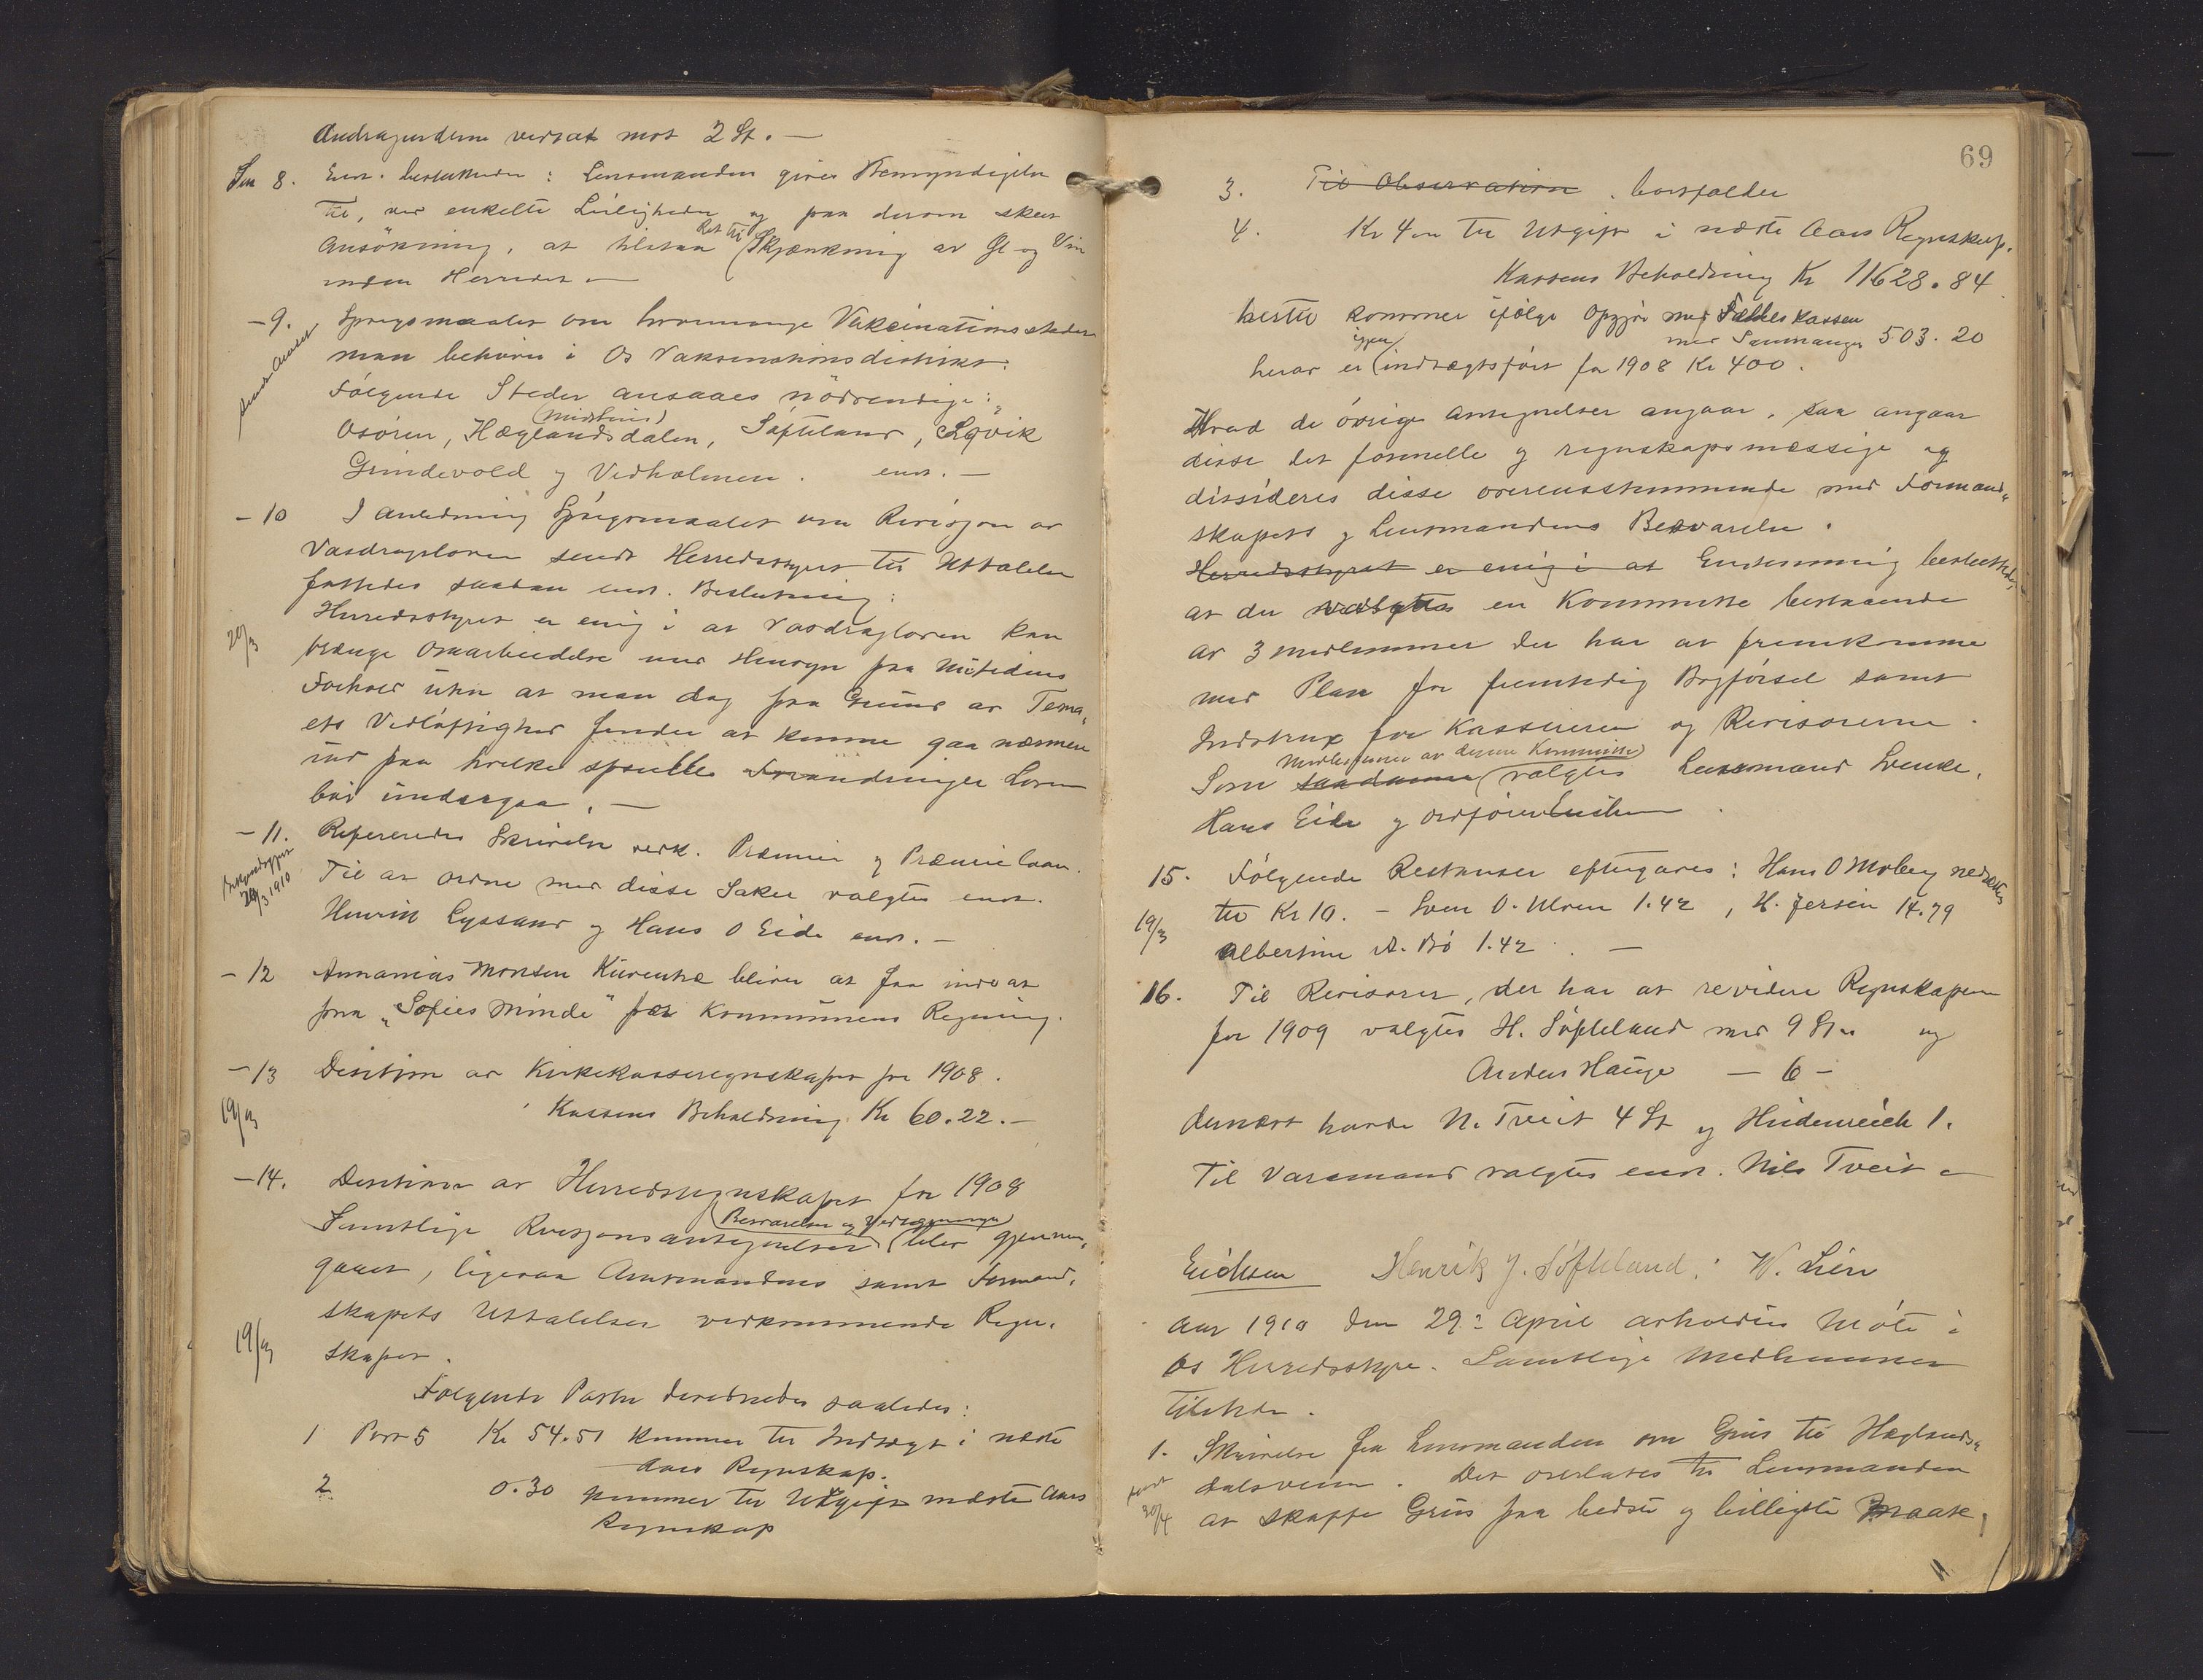 Andragenderne vedtat mot 2 St. —
Sak 8. Enst. besluttedes: Lensmanden gives Bemyndigelse
til, ved enkelte Leiligheder og paa derom skeet
Ansökning, at tilstaa Ret til Skjænkning av Öl og Vin
inden Herredet —
- 9. Spörgsmaalet om hvormange Vakcinationssteder
man behöver i Os Vakcinationsdistrikt.
Fölgende Steder ansaaes nödvendige:
Osören, Hæglandsdalen, (Midthuus) Söfteland, Lqvik
Grindevold og Vedholmen. enst. —
- 10 I Anledning Spörgsmaalet om Revisjon av
Vasdragsloven sendt Herredsstyret til Uttalelse
fattedes saadan enst. Beslutning:
20/3 Herredsstyret er enig i at Vasdragloven kan
trænge Omarbeidelse med Hensyn paa Nutidens
Forhold uten at man dog paa Grund av Tema-
ets Vidlöftighed finder at kunne gaa nærmere
ind paa hvilke spicielle Forandringer Loven
bör undergaa. —
- 11. Refereredes Skrivelse vedk. Præmie og Præmielaan.
20/3 1910 Til at ordne med disse Saker valgtes enst.
Henrik Lyssand og Hans O Eide enst. —
- 12 Annanias Monsen Kuventræ bliver at faa indsat
paa "Sofies Minde" for Kommunens Regning.
- 13 Desisjon av Kirkekasseregnskapet for 1908.
19/3 Kassens Beholdning Kr 60.22. —
- 14. Desisjon av Herredsregnskapet for 1908
Samtlige Revisjonsantegnelser (Besvarelser og blev gjennem-
gaaet, ligesaa Amtmandens samt Formand-
skapets Uttalelser vedkommende Regn-
19/3 skapet.
Følgende Poster desideredes saaledes:
1 Post 5 Kr 54.51 kommer til Indtægt i næste
Aars Regnskap.
2 0.30 kommer til Utgift næste Aars
Regnskap
69
3. Til Observation. bortfalder
4. Kr 4 til Utgift i næste Aars Regnskap.
Kassens Beholdning Kr 11628.84
hertil kommer ifölge Opgjör med Fælleskassen
med Samnanger 503.20
herav er igjen indtægtsfört for 1908 Kr 400.
Hvad de övrige Antegnelser angaar, saa angaar
disse det formelle og regnskapsmæssige og
dissideres disse overensstemmende med Formand-
skapets og Lensmandens Besvarelse.
Herredsstyret er enig i at Enstemmig besluttedes
at der valgtes en Kommitte bestaaende
av 3 Medlemmer der har at fremkomme
med Plan for fremtidig Bogförsel samt
Indstrux for Kassereren og Revisorerne.
Medlemmer av denne Kommitte
Som saadanne valgtes Lensmand Svenke,
Hans Eide og Ordförer Eidsen.
15. Fölgende Restanser eftergaves: Hans O Moberg nedsættes
19/3 til Kr 10. - Sven O. Ulven 1.42, H. Jersin 14.79
Albertine A. Bö 1.42. —
16. Til Revisorer, der har at revidere Regnskapene
for 1909 valgtes H. Söfteland med 9 St. og
Anders Hauge — 6 —
dernæst havde N. Tveit 4 St og Heidenreich 1.
Til Varamand valgtes enst. Nils Tveit —
Eidsen Henrik J. Söfteland. N. Lien
Aar 1910 den 29: April avholdtes Möte i
Os Herredsstyre. Samtlige Medlemmer
tilstede.
1. Skrivelse fra Lensmanden om Grus til Hæglands-
dalsveien. Det overlates til Lensmanden
30/4 at skaffe Grus paa bedste og billigste Maate,